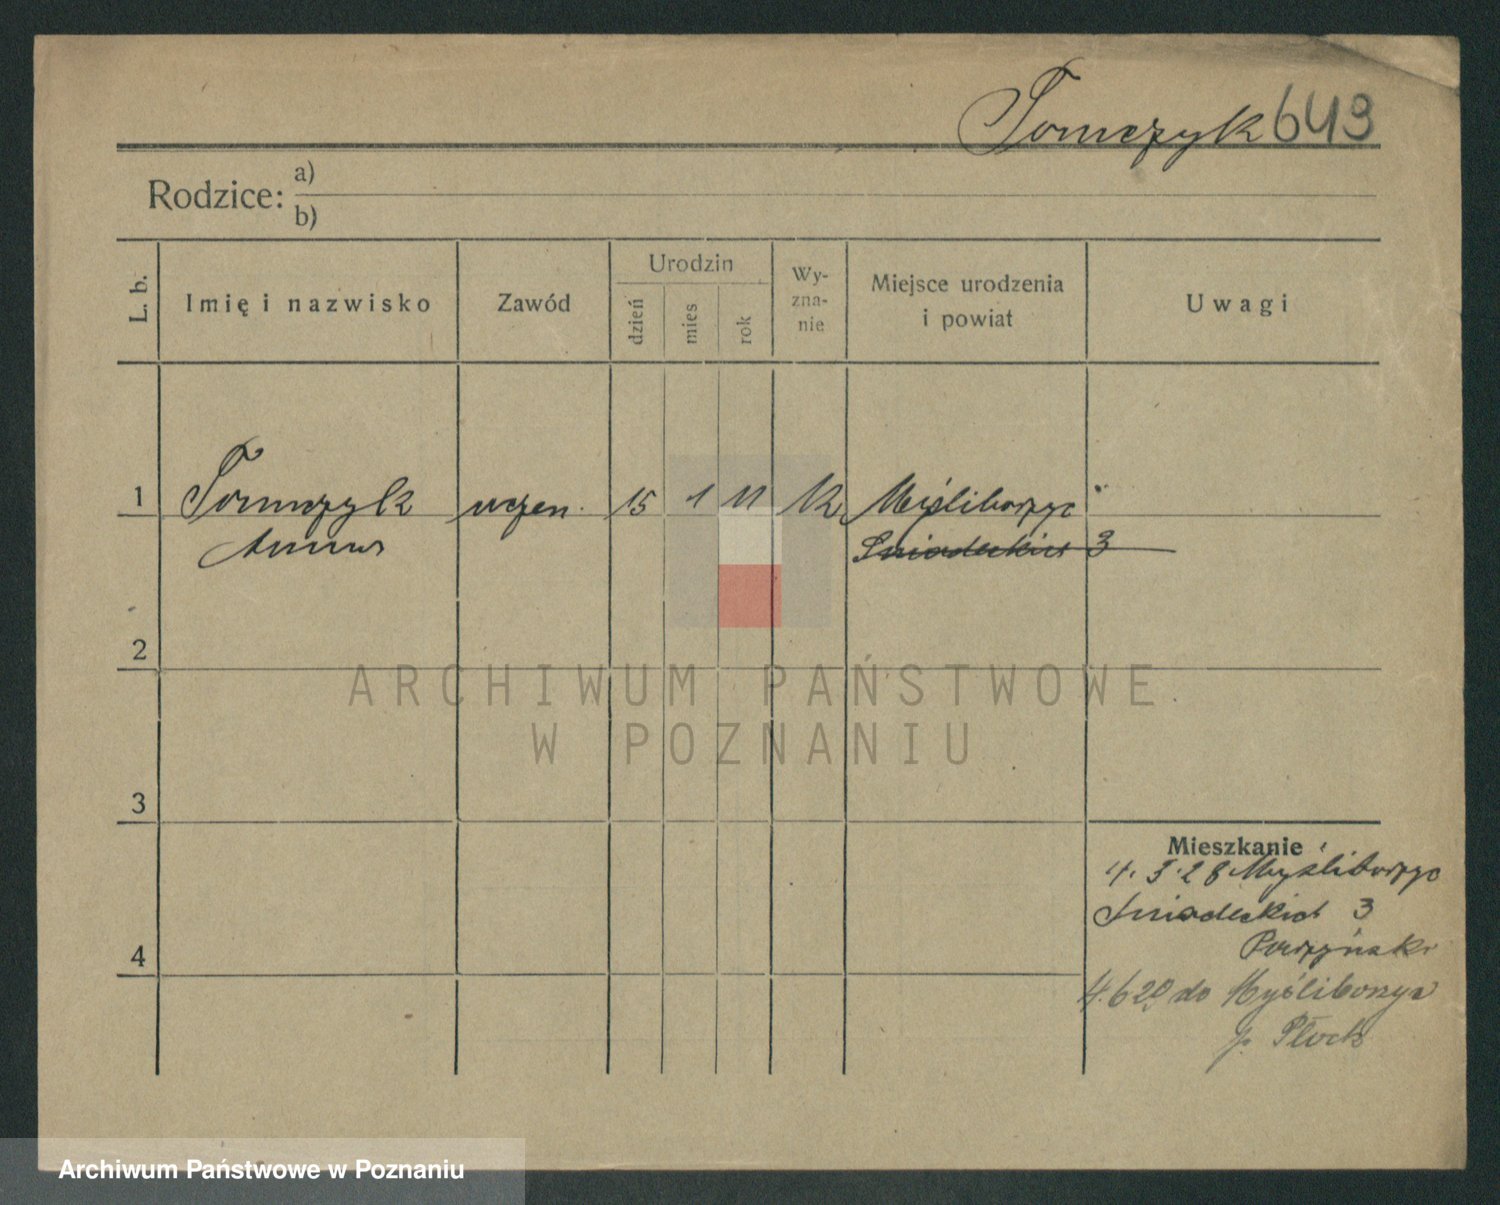 Tomczyk 643
Rodzice: a)
b)
L. b. Imię i nazwisko Zawód Urodzin dzień mies rok Wy-zna-nie Miejsce urodzenia i powiat Uwagi
1 Tomczyk uczen. 15 1 11 K Myśliborzyc
Śniadeckich 3
2
3
Mieszkanie
4. 3. 28 Myśliborzyc
Śniadeckich 3
4
4. 6 29 do Myśliborzyc
p. Płock
ARCHIWUM PAŃSTWOWE
W POZNANIU
Archiwum Państwowe w Poznaniu